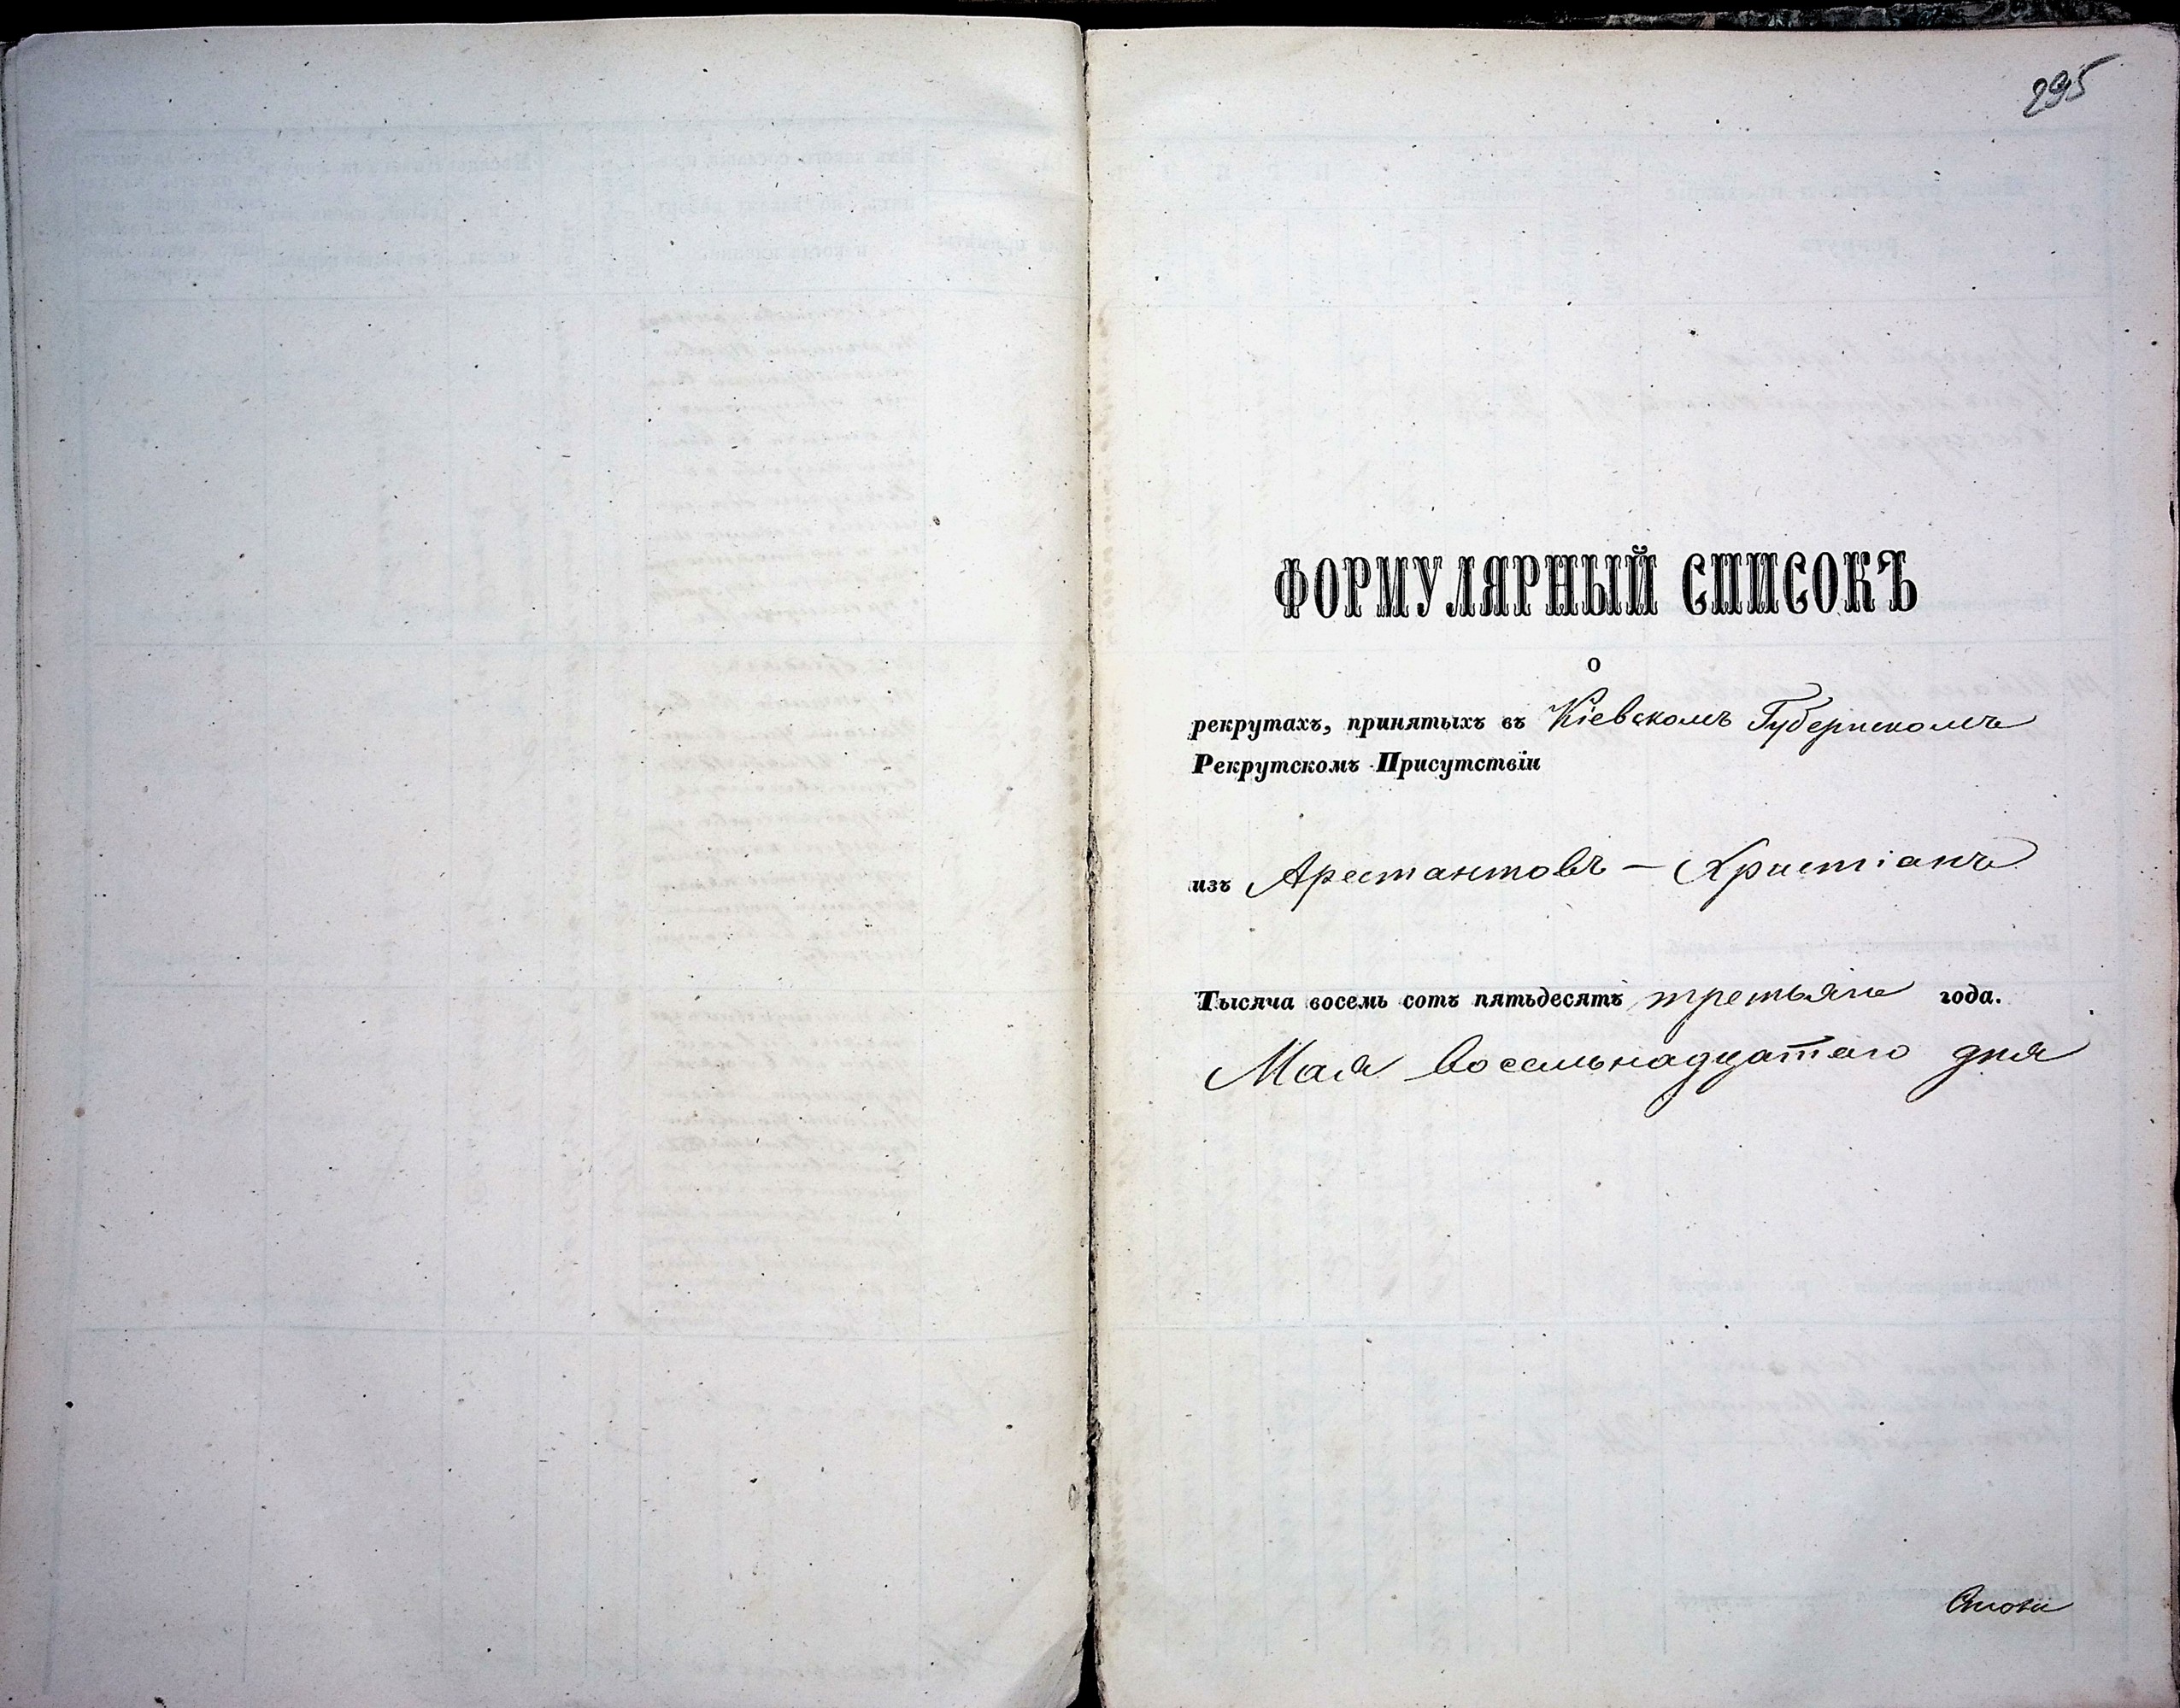 295
ФОРМУЛЯРНЫЙ СПИСОКЪ
о
рекрутахъ, принятыхъ въ Кіевскомъ Губернскомъ
Рекрутскомъ Присутствіи
изъ Арестантовъ — Христіанъ
Тысяча восемь сотъ пятьдесятъ третьяго года.
Мая восемьнадцатаго дня